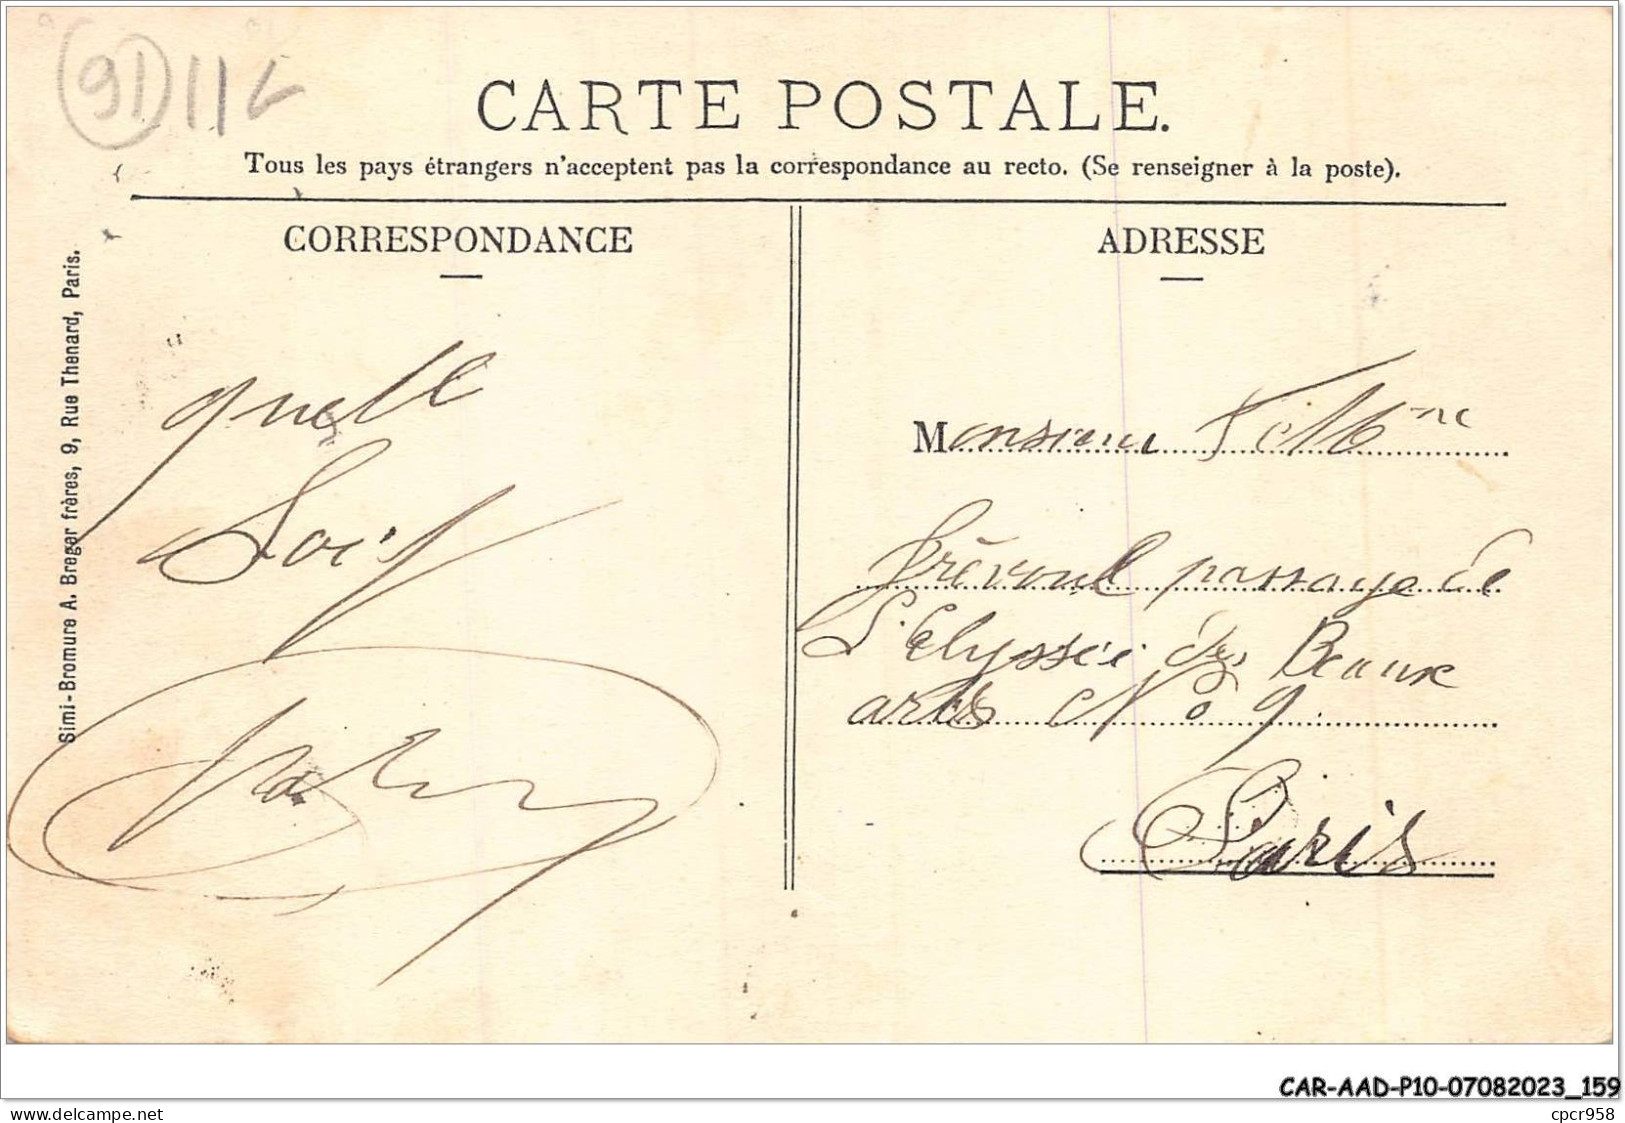 91 11 G
CARTE POSTALE.
Tous les pays étrangers n'acceptent pas la correspondance au recto. (Se renseigner à la poste).
CORRESPONDANCE
quelle
Soif
Simi-Bromure A. Breger frères, 9, Rue Thenard, Paris.
ADRESSE
Monsieur et Mme
Prévoul passage de
L'Elyssée des Beaux
arts No 9
Paris
CAR-AAD-P10-07082023_159
www.delcampe.net
cpcr958